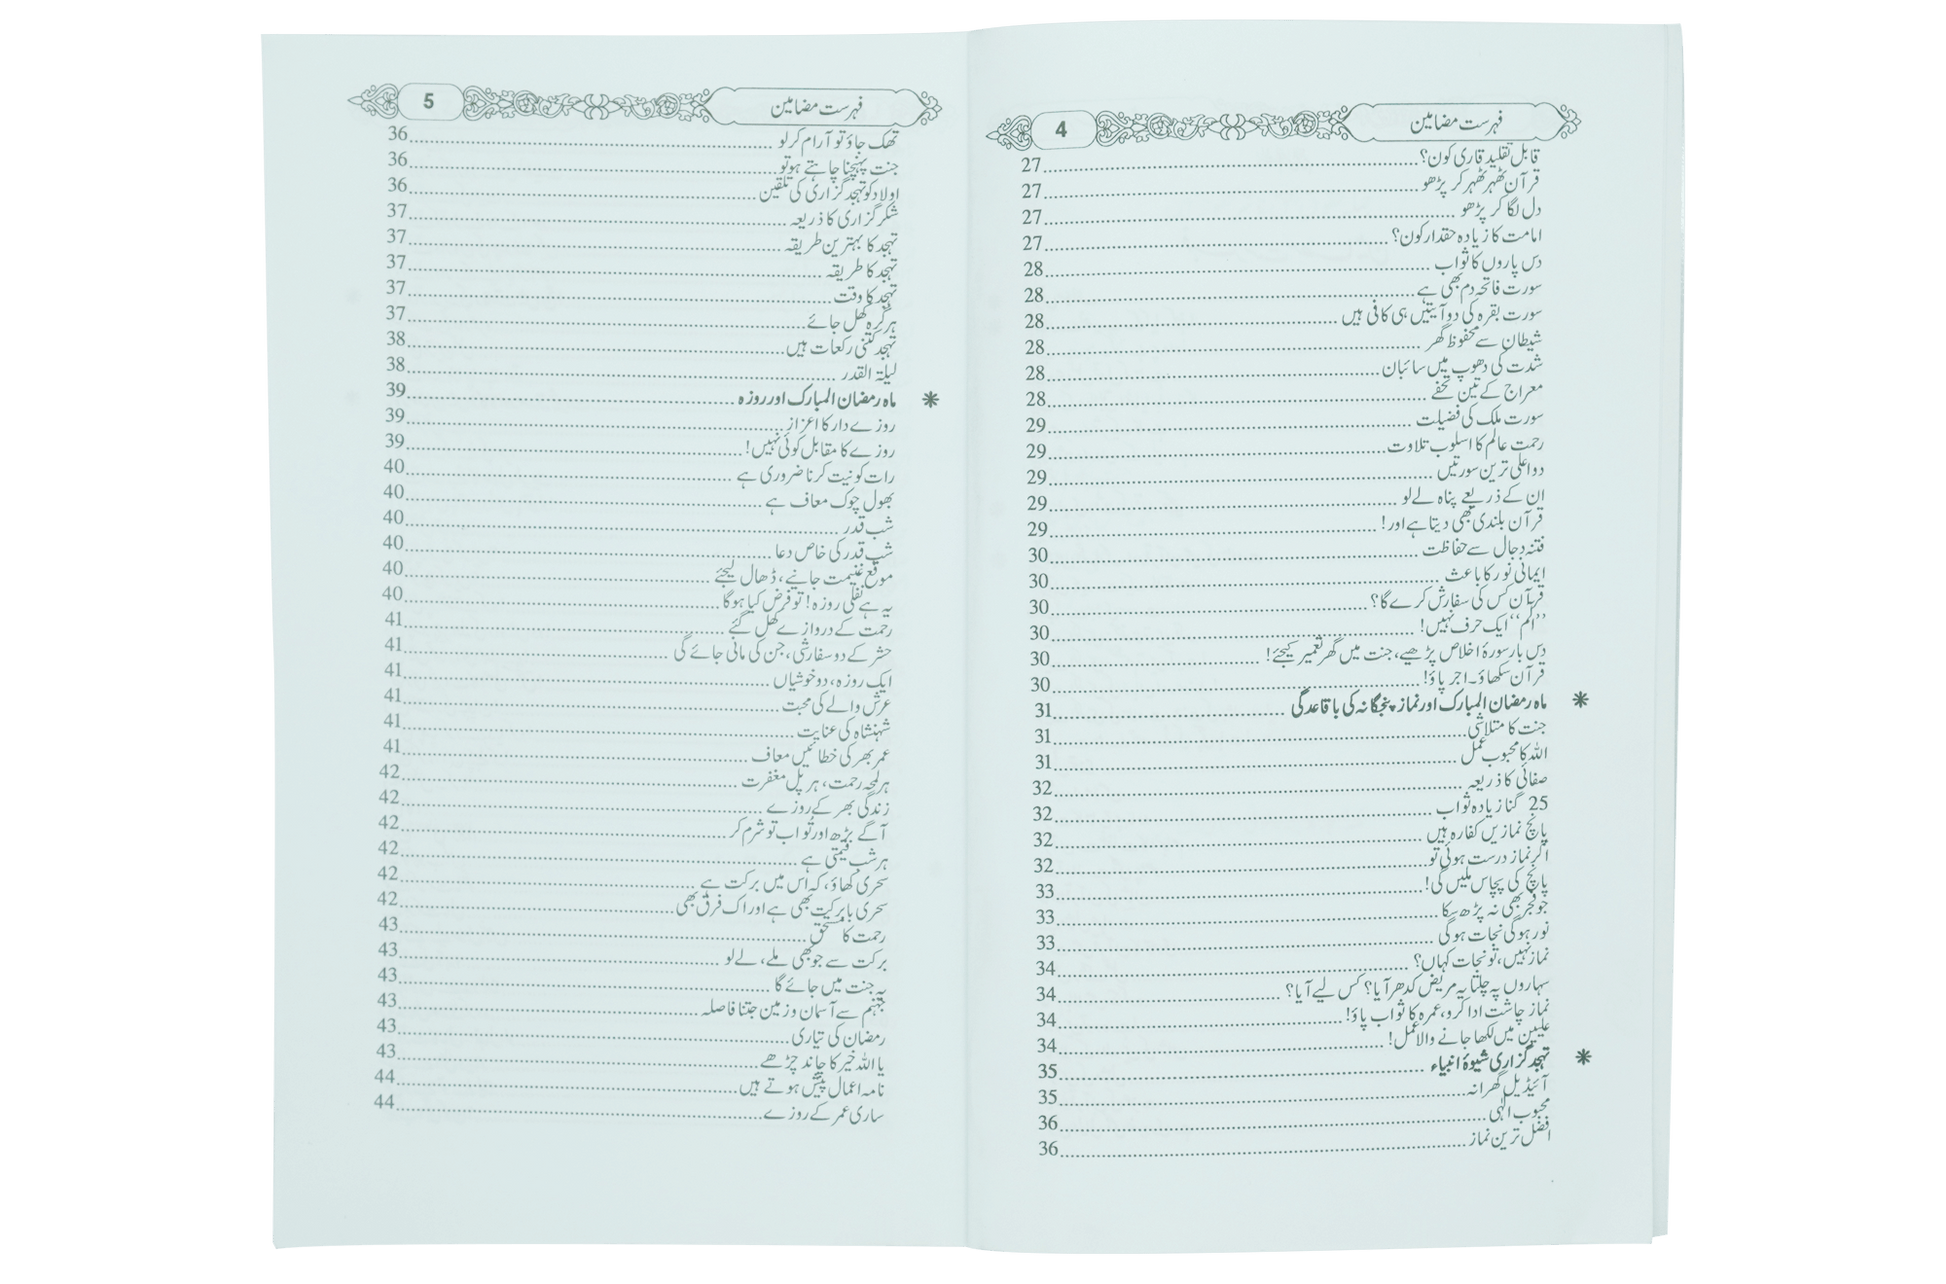 فہرست مضامین 4
قابل تقلید قاری کون؟ 27
قرآن ٹھہر ٹھہر کر پڑھو 27
دل لگا کر پڑھو 27
امامت کا زیادہ حقدار کون؟ 27
دس پاروں کا ثواب 28
سورت فاتحہ دم بھی ہے 28
سورت بقرہ کی دو آیتیں ہی کافی ہیں 28
شیطان سے محفوظ گھر 28
شدت کی دھوپ میں سائبان 28
معراج کے تین تحفے 28
سورت ملک کی فضیلت 29
رحمت عالم کا اسلوب تلاوت 29
دو اعلیٰ ترین سورتیں 29
ان کے ذریعے پناہ لے لو 29
قرآن بلندی بھی دیتا ہے اور! 29
فتنہ دجال سے حفاظت 30
ایمانی نور کا باعث 30
قرآن کس کی سفارش کرے گا؟ 30
’’الم‘‘ ایک حرف نہیں! 30
دس بار سورۂ اخلاص پڑھیے، جنت میں گھر تعمیر کیجئے! 30
قرآن سکھاؤ۔ اجر پاؤ! 30
✳ ماہ رمضان المبارک اور نماز پنجگانہ کی باقاعدگی 31
جنت کا متلاشی 31
اللہ کا محبوب عمل 31
صفائی کا ذریعہ 32
25 گنا زیادہ ثواب 32
پانچ نمازیں کفارہ ہیں 32
اگر نماز درست ہوئی تو 32
پانچ کی پچاس ملیں گی! 33
جو فجر بھی نہ پڑھ سکا 33
نور ہوگی نجات ہوگی 33
نماز نہیں، تو نجات کہاں؟ 34
سہاروں پہ چلتا یہ مریض کدھر آیا؟ کس لیے آیا؟ 34
نماز چاشت ادا کرو، عمرہ کا ثواب پاؤ! 34
علیین میں لکھا جانے والا عمل! 34
✳ تہجد گزاری شیوۂ انبیاء 35
آئیڈیل گھرانہ 35
محبوب الٰہی 36
افضل ترین نماز 36
فہرست مضامین 5
تھک جاؤ تو آرام کر لو 36
جنت پہنچنا چاہتے ہو تو 36
اولاد کو تہجد گزاری کی تلقین 36
شکر گزاری کا ذریعہ 37
تہجد کا بہترین طریقہ 37
تہجد کا طریقہ 37
تہجد کا وقت 37
ہر گرہ کھل جائے 37
تہجد کتنی رکعات ہیں 38
لیلۃ القدر 38
✳ ماہ رمضان المبارک اور روزہ 39
روزے دار کا اعزاز 39
روزے کا مقابل کوئی نہیں! 39
رات کو نیت کرنا ضروری ہے 40
بھول چوک معاف ہے 40
شب قدر 40
شب قدر کی خاص دعا 40
موقع غنیمت جانیے، ڈھال لیجئے 40
یہ ہے نفلی روزہ! تو فرض کیا ہوگا 40
رحمت کے دروازے کھل گئے 41
حشر کے دو سفارشی، جن کی مانی جائے گی 41
ایک روزہ، دو خوشیاں 41
عرش والے کی محبت 41
شہنشاہ کی عنایت 41
عمر بھر کی خطائیں معاف 41
ہر لمحہ رحمت، ہر پل مغفرت 42
زندگی بھر کے روزے 42
آگے بڑھ اور تو اب تو شرم کر 42
ہر شب قیمتی ہے 42
سحری کھاؤ، کہ اس میں برکت ہے 42
سحری بابرکت بھی ہے اور اک فرق بھی 42
رحمت کا مستحق 43
برکت سے جو بھی ملے، لے لو 43
یہ جنت میں جائے گا 43
جہنم سے آسمان و زمین جتنا فاصلہ 43
رمضان کی تیاری 43
یا اللہ خیر کا چاند چڑھے 43
نامہ اعمال پیش ہوتے ہیں 44
ساری عمر کے روزے 44